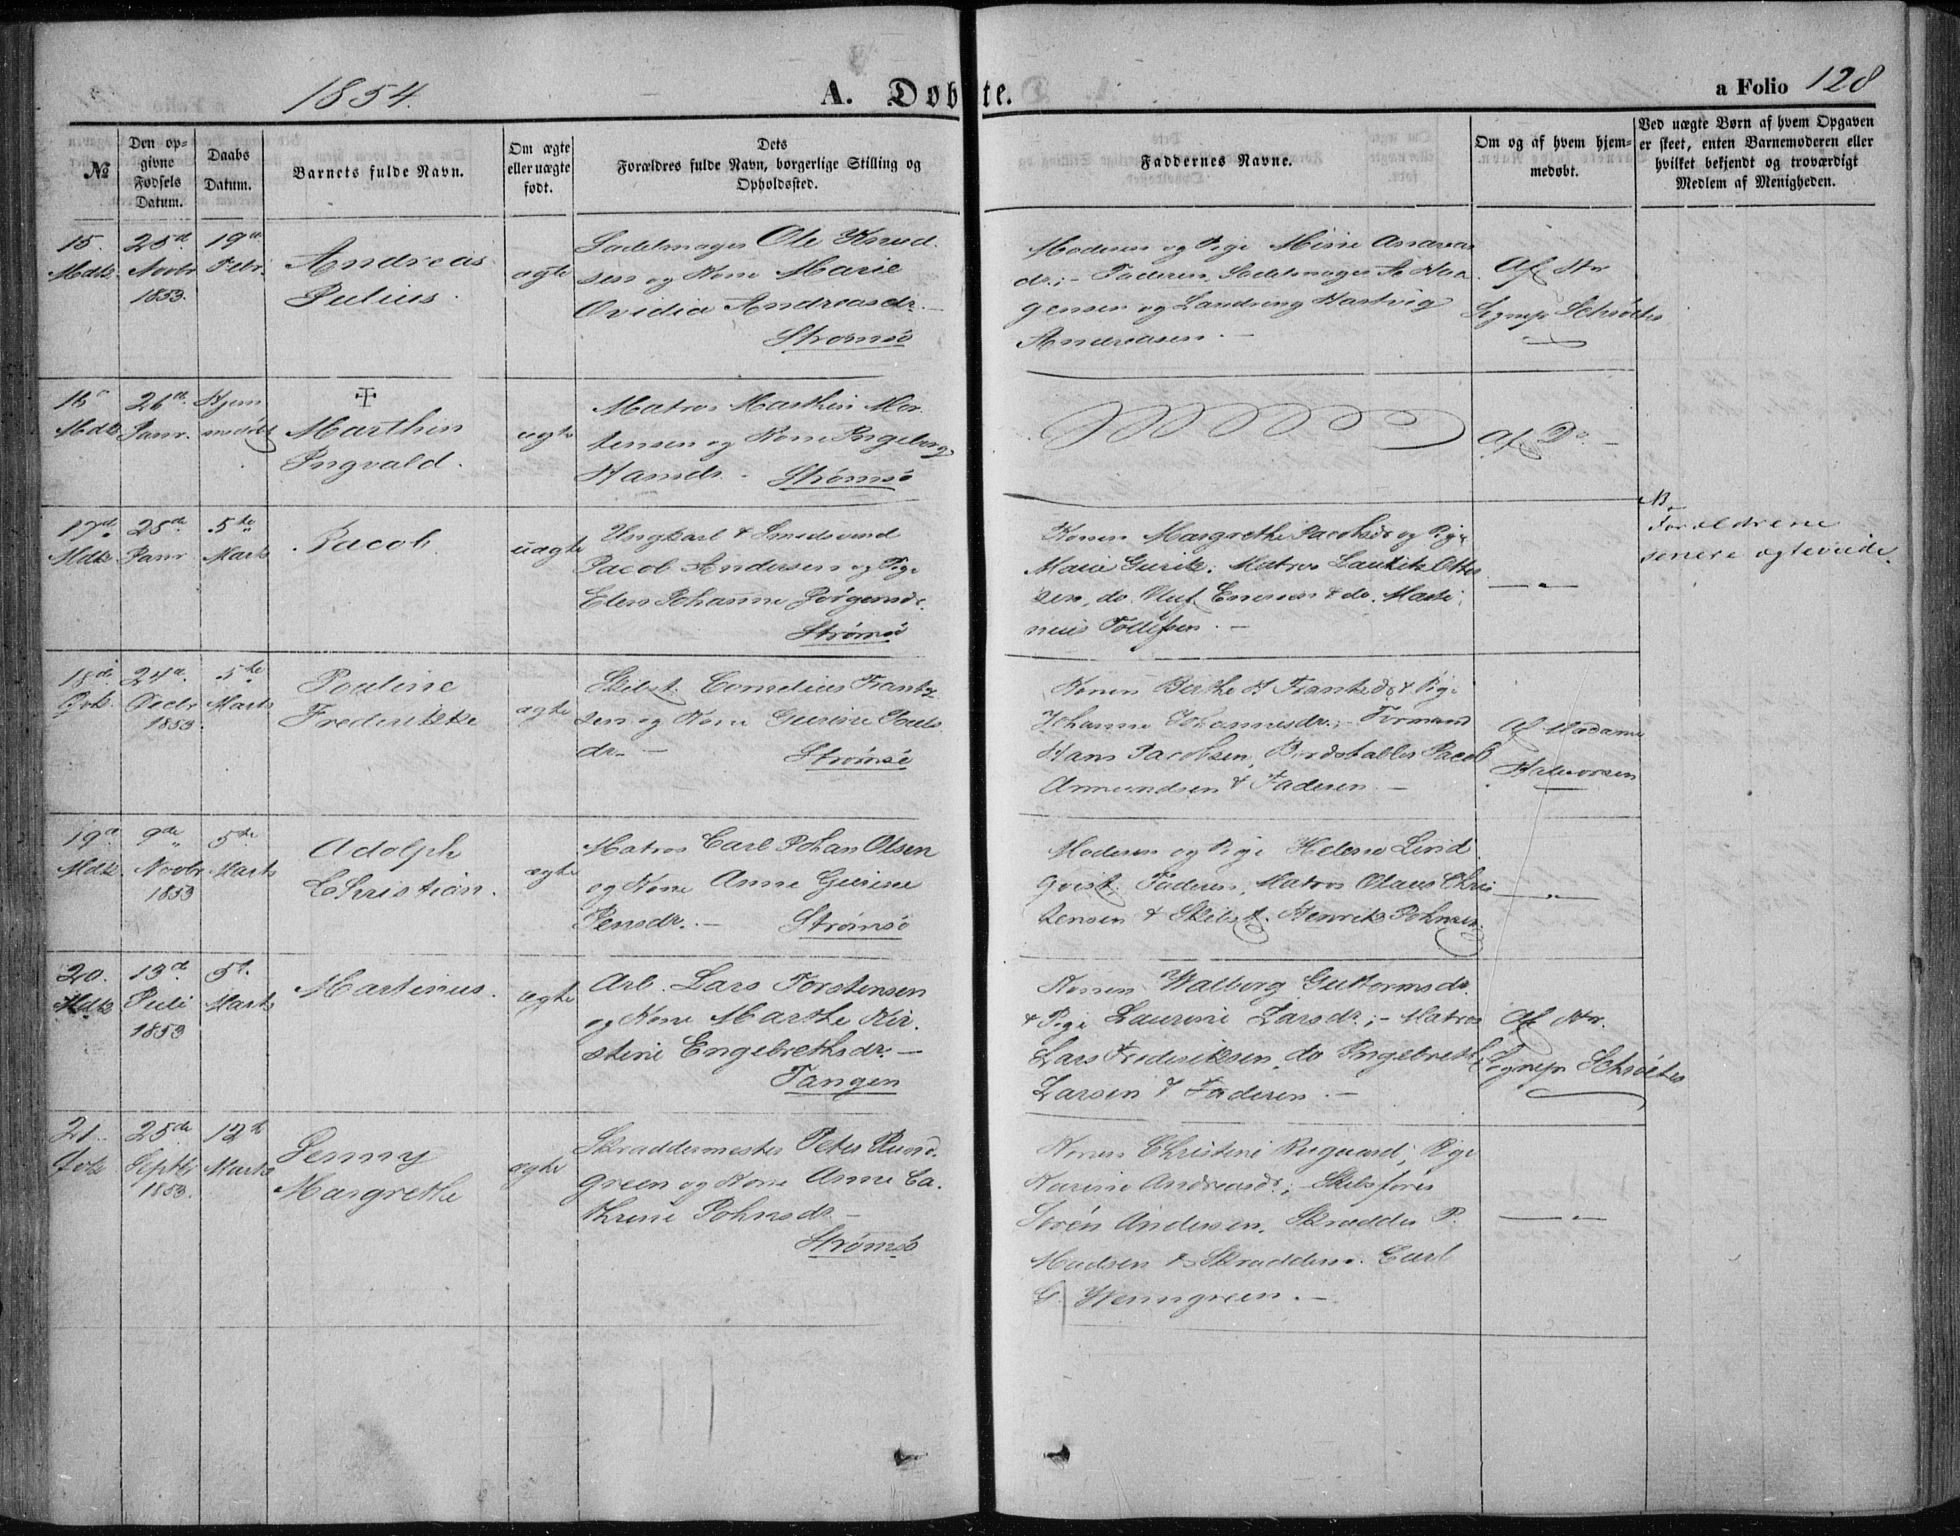 1854.
A. Døbte.
a Folio 128
№
Den op-
givne
Fødsels
Datum.
Daabs
Datum.
Barnets fulde Navn.
Om ægte
eller uægte
født.
Dets
Forældres fulde Navn, borgerlige Stilling og
Opholdssted.
Faddernes Navne.
Om og af hvem hjem-
medøbt.
Ved uægte Børn af hvem Opgaven
er skeet, enten Barnemoderen eller
hvilket bekjendt og troværdigt
Medlem af Menigheden.
15.
Mdk.
25de
Novbr
1853.
19de
Febr.
Andreas
Julius.
ægte
Sadelmager Ole Knud
sen og Kone Marie
Ovidia Andreasdr. –
Strømsø
Moderen og Pige Andrea
dr; – Faderen, Sadelmager
gensen og Hartvig
Andreasen. –
Af Hr
Schrøter
16
Mdk
26de
Janr.
Hjem
medøbt
Marthin
Ingvald.
ægte
Matros Marthin Mor
tensen og Kone Ingeborg
Hansdr. – Strømsø
Af Do. –
17de
Mdk
25de
Janr
5te
Marts
Jacob
uægte
Ungkarl & Smedsvend
Jacob Andersen og Pige
Elen Johanne Jørgensdr.
Strømsø
Konen Margrethe Jacobsdr og Pige
Marie Matros Lauritz Otte
sen, do. Oluf & do. Marti
nius Tollefsen. –
— " —
NB
Forældrene
senere egteviede.
18de
Pvk.
24de
Decbr
1853.
5te
Marts
Pouline
Frederikke
ægte
Skibst. Cornelius Frantz
sen og Kone Gurine Pouls
dr. –
Strømsø
Konen Berthe H Frantzdr & Pige
Johanne Johannesdr; – Formand
Hans Jacobsen, Jacob
Amundsen & Faderen –
Af Madame
Halvorsen
19de
Mdk
9de
Novbr
1853
5te
Marts
Adolph
Christian.
ægte
Matros Carl Johan Olsen
og Kone Anne Gurine
Jensdr. – Strømsø
Moderen og Pige Helene Lind
qvist. Faderen, Matros Olaus Chris
tensen & Skibst. Henrik Johnsen.
— " —
20.
Mdk
13de
Juli
1853
5te
Marts
Martinius.
ægte
Arb. Lars Torstensen
og Kone Marthe Kir
stine Engebrethsdr. –
Tangen
Konen Walborg Guttormsdr.
& Pige Laurine Larsdr; – Matros
Lars Frederiksen, do Ingebreth
Larsen & Faderen. –
Af Hr.
Schrøter
21.
Pvk
25de
Septbr
1853.
12te
Marts
Jenny
Margrethe
ægte
Skræddermester Peter Rund
green og Kone Anne Ca
thrine Johnsdr –
Strømsø
Konen Christine Pige
Karine Andreasdr; – Skibsfører
Søren Andersen, Skrædder P.
Madsen & Skrædderm. Carl
G. Wenngreen. –
— " —